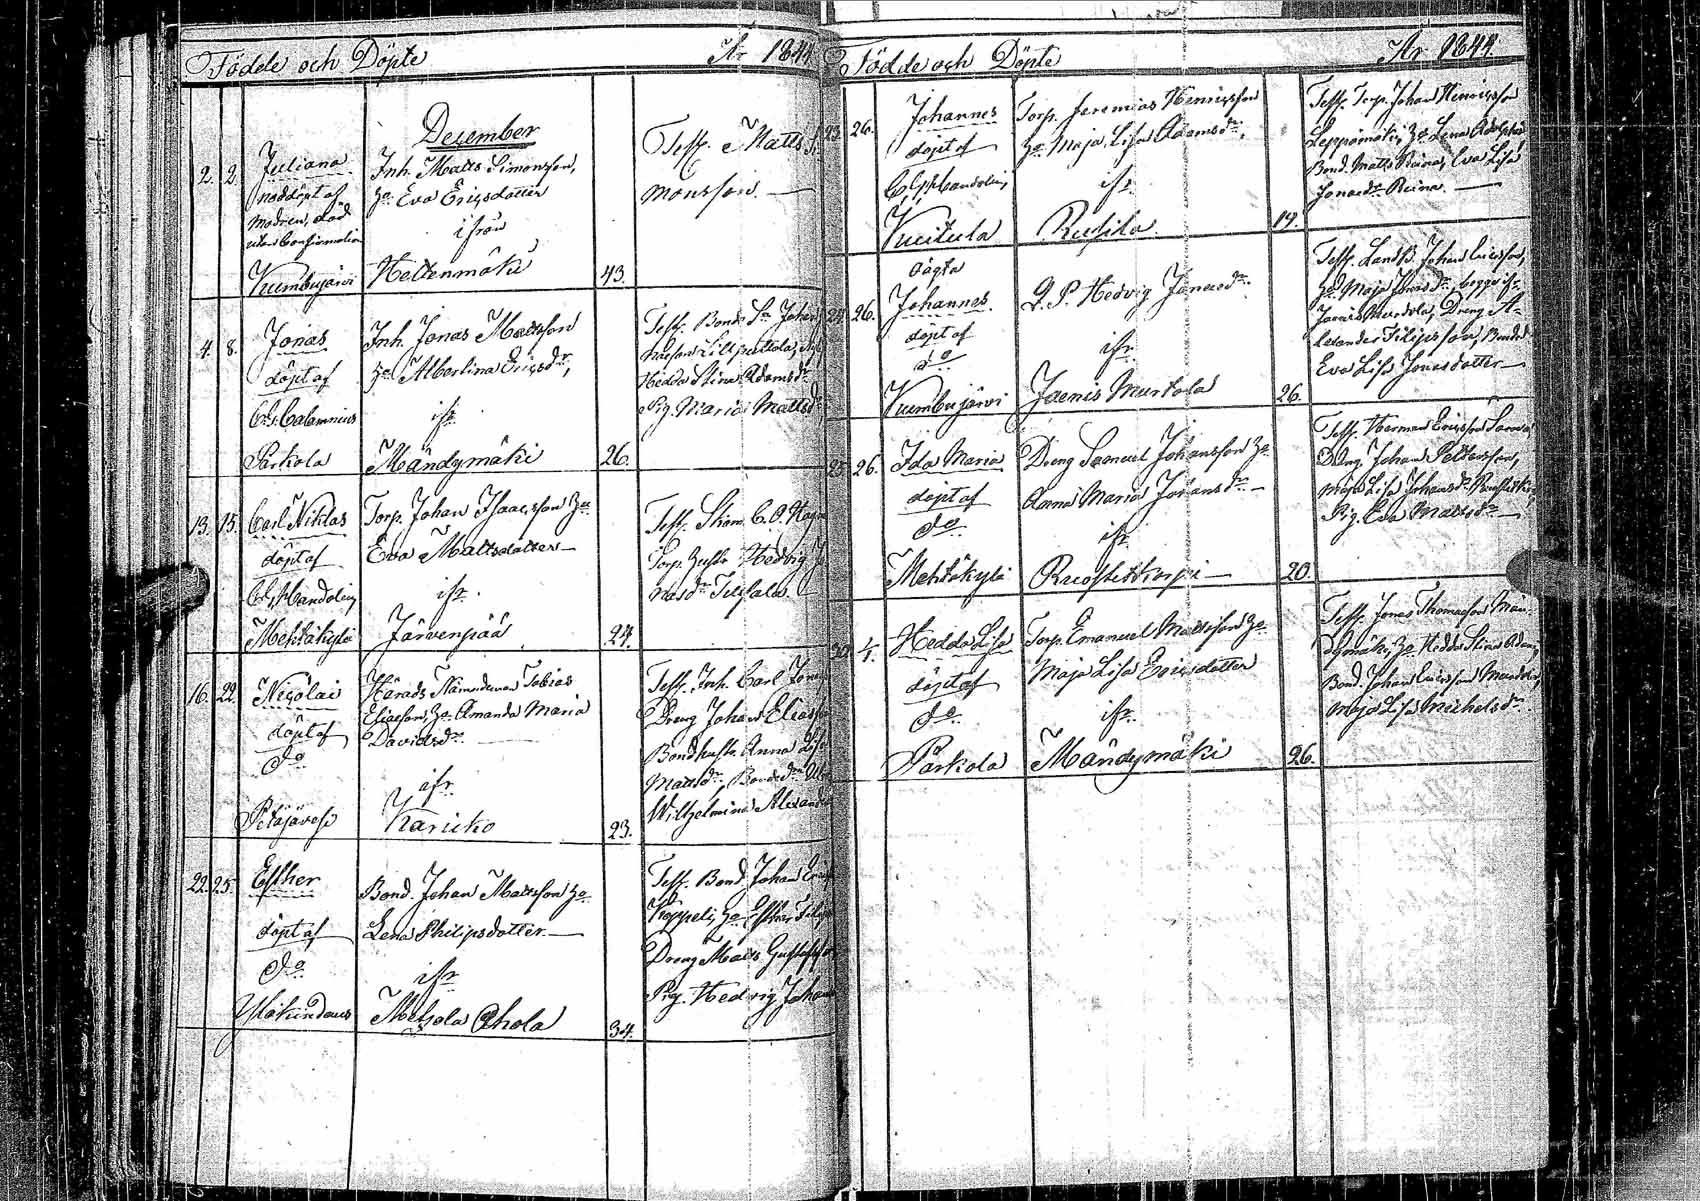 Födde och Döpte År 1844
December
2. 2. Juliana
nöddöpt af
modren, död
utan Confirmation
Kumbujärvi
Inh. Matts Simonsson,
h:o Eva Ericsdotter
ifrån
Hettenmäki
43.
Test. Matts Si-
monsson.
4. 8. Jonas
döpt af
C. J. Calamnius
Parkola
Inh. Jonas Mattsson
h:o Albertina Ericsd:r,
ifr
Mändymäki
26.
Test. Bond S:n Johan
Hedda Stina Adamsd:r
Pig. Maria Mattsd:r
13. 15. Carl Niklas
döpt af
Mehtäkylä
Torp. Johan Isaacsson h:o
Eva Mattsdotter
ifr.
Järvenpää
24.
Test.
Torp. hustr. Hedvig Jo-
nasd:r
16. 22. Nicolai
döpt af
d:o
Petäjävesi
Härads Nämndeman Tobias
Eliaeson, h:o Amanda Maria
Davidsd:r
ifr
Karicko
23.
Test. Inh. Carl
Dreng Johan Eliasson
Bondhustr. Anna Lisa
Mattsd:r, Bonded:r
Wilhelmina Alexander
22. 25. Esther
döpt af
d:o
Ylikindaus
Bond. Johan Mattsson h:o
Lena Philipsdotter
ifr
Metzola Ahola
34.
Test. Bond. Johan Erics
Koppeli, h:o Esther Filip
Dreng Matts Gustafsson
Pig. Hedvig Johans
Födde och Döpte År 1844.
23. 26. Johannes
döpt af
Kuitula
Torp. Jeremias Henricsson
h:o Maja Lisa Adamsd:r,
ifr
Rusila
14.
Test. Torp. Johan Henricsson
Leppämäki, h:o Lena Adolphsd
Bond. Matts Reina, Eva Lisa
Jonasd:r Reina.
24. 26. oägta
Johannes
döpt af
d:o
Kumbujärvi
Q. P. Hedvig Jonasd:r
ifr
Jaenis Murtola
26.
Test. Landb. Johan Ericsson,
h:o Maja Jonasd:r, begge ifr
Jaenis Murtola, Dreng A-
lexander Filipsson, Bonded
Eva Lisa Jonasdotter
25. 26. Ida Maria
döpt af
d:o
Mehtäkylä
Dreng Samuel Johansson h:o
Anna Maria Johansd:r
ifr
Ruostetkorpi
20.
Test. Herman Ericsson
Dreng. Johan Pettersson,
Maja Lisa Johansd:r
Pig. Eva Mattsd:r
30. 4. Hedda Lisa
döpt af
d:o
Parkola
Torp. Emanuel Mattsson h:o
Maja Lisa Ericsdotter
ifr
Mändymäki
26.
Test. Jonas Thomasson Män-
dymäki, h:o Hedda Stina Adams
Bond. Johan Ericsson
Maja Lisa Michelsd:r